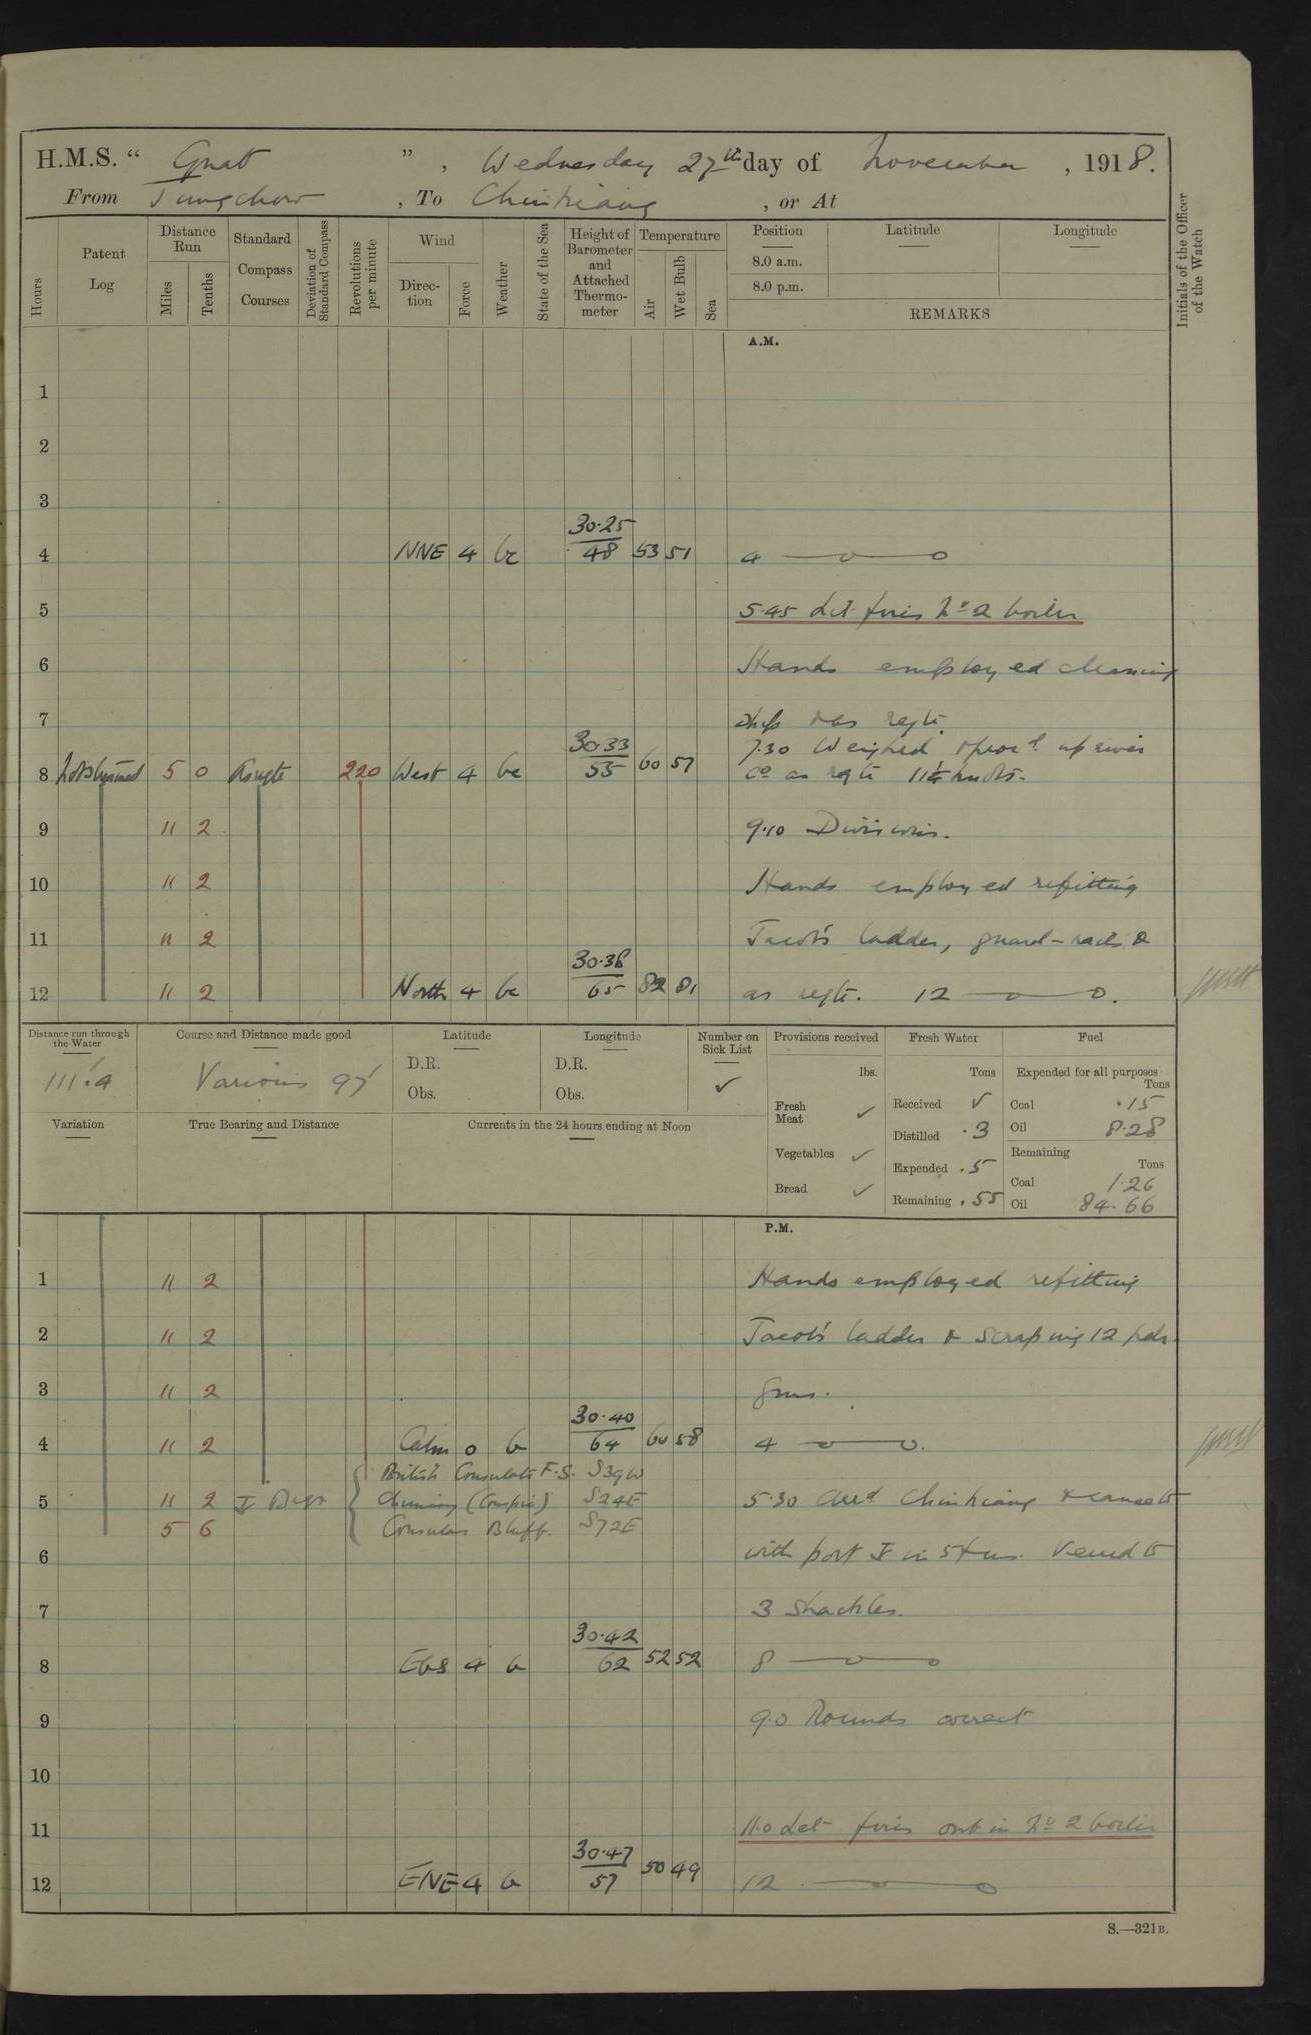 H.M.S. “ Gnat ” , Wednesday 27th day of November , 1918.
From Tungchow , To Chinkiang , or At
Hours
Patent Log
Distance Run
Miles
Tenths
Standard Compass Courses
Deviation of Standard Compass
Revolutions per minute
Wind
Direction
Force
Weather
State of the Sea
Height of Barometer and Attached Thermometer
Temperature
Air
Wet Bulb
Sea
Position
8.0 a.m.
8.0 p.m.
Latitude
Longitude
REMARKS
Initials of the Officer of the Watch
A.M.
1
2
3
4 NNE 4 bc 30·25 48 53 51 4
5 5·45 Lit fires No 2 boiler
6 Hands employed cleaning
7 ship & as reqte.
7.30 Weighed & proc'd up river
8 Not streamed 5 0 As reqte 220 West 4 bc 30·33 55 60 57 Co as reqte 11¼ knots.
9 11 2 9·10 Divisions.
10 11 2 Hands employed refitting
11 11 2 Jacob's ladder, guard-rails &
12 11 2 North 4 bc 30·38 65 82 81 as reqte. 12
Distance run through the Water
111·4
Course and Distance made good
Various 97'
Latitude
D.R.
Obs.
Longitude
D.R.
Obs.
Number on Sick List
✓
Provisions received
lbs.
Fresh Meat ✓
Vegetables ✓
Bread ✓
Fresh Water
Tons
Received ✓
Distilled ·3
Expended ·5
Remaining ·55
Fuel
Expended for all purposes
Tons
Coal ·15
Oil 8·28
Remaining
Tons
Coal 1·26
Oil 84·66
Variation
True Bearing and Distance
Currents in the 24 hours ending at Noon
P.M.
1 11 2 Hands employed refitting
2 11 2 Jacob's ladder & scraping 12 pdr
3 11 2 guns.
4 11 2 Calm 0 b 30·40 64 60 58 4
British Consulate F.S. S39W
5 11 2 Chimney (Conspic) S24E 5·30 Arrd Chinkiang & came to
5 6 Consular Bluff. S72E
6 with port in 5 fms. Veered to
7 3 shackles.
8 EbS 4 b 30·42 62 52 52 8
9 9·0 Rounds correct
10
11 11·0 Let fires out in No 2 boiler
12 ENE 4 b 30·47 57 50 49 12
S.—321B.